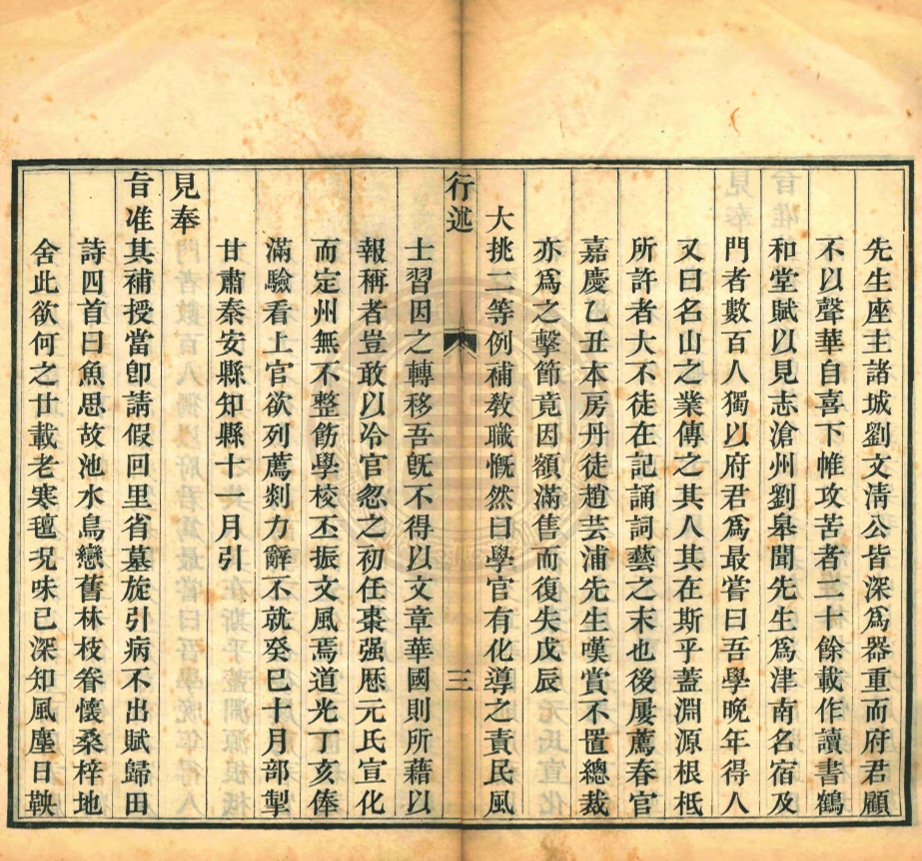 先生座主諸城劉文清公皆深為器重而府君顧
不以聲華自喜下帷攻苦者二十餘載作讀書鶴
和堂賦以見志滄州劉皋聞先生為津南名宿及
門者數百人獨以府君為最嘗曰吾學晚年得人
又曰名山之業傳之其人其在斯乎蓋淵源根柢
所許者大不徒在記誦詞藝之末也後屢薦春官
嘉慶乙丑本房丹徒趙芸浦先生嘆賞不置總裁
亦為之擊節竟因額滿售而復失戊辰
大挑二等例補教職慨然曰學官有化導之責民風
行述
三
士習因之轉移吾旣不得以文章華國則所藉以
報稱者豈敢以冷官忽之初任棗强歷元氏宣化
而定州無不整飭學校丕振文風焉道光丁亥俸
滿驗看上官欲列薦剡力辭不就癸巳十月部掣
甘肅秦安縣知縣十一月引
見奉
旨准其補授當卽請假回里省墓旋引病不出賦歸田
詩四首曰魚思故池水鳥戀舊林枝眷懷桑梓地
舍此欲何之廿載老寒氊况味已深知風塵日鞅